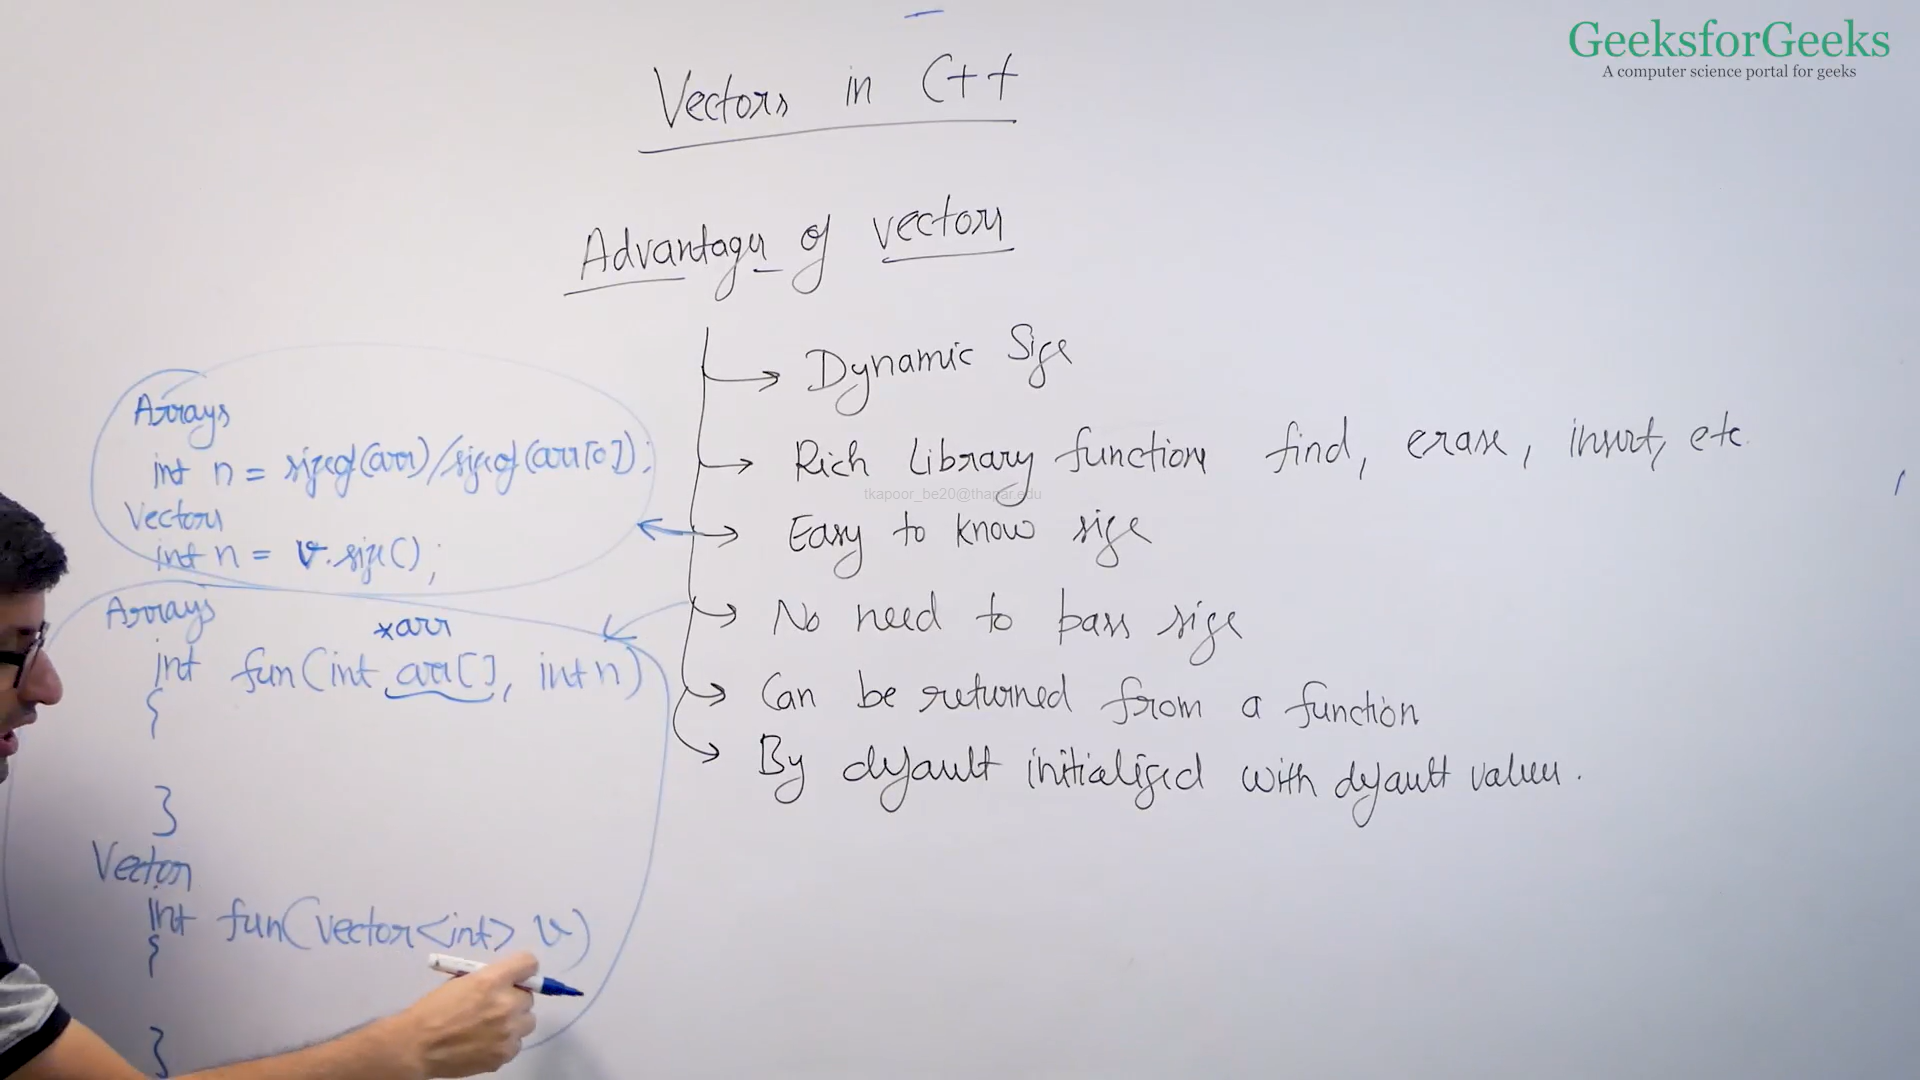 GeeksforGeeks
A computer science portal for geeks
Vectors in C++
Advantages of vectors
Dynamic Size
Rich Library functions find, erase, insert, etc
tkapoor_be20@thapar.edu
Easy to know size
No need to pass size
Can be returned from a function
By default initialized with default values.
Arrays
int n = sizeof(arr)/sizeof(arr[0]);
Vectors
int n = v.size();
Arrays
*arr
int fun(int arr[], int n)
{
}
Vectors
int fun(vector<int> v)
{
}